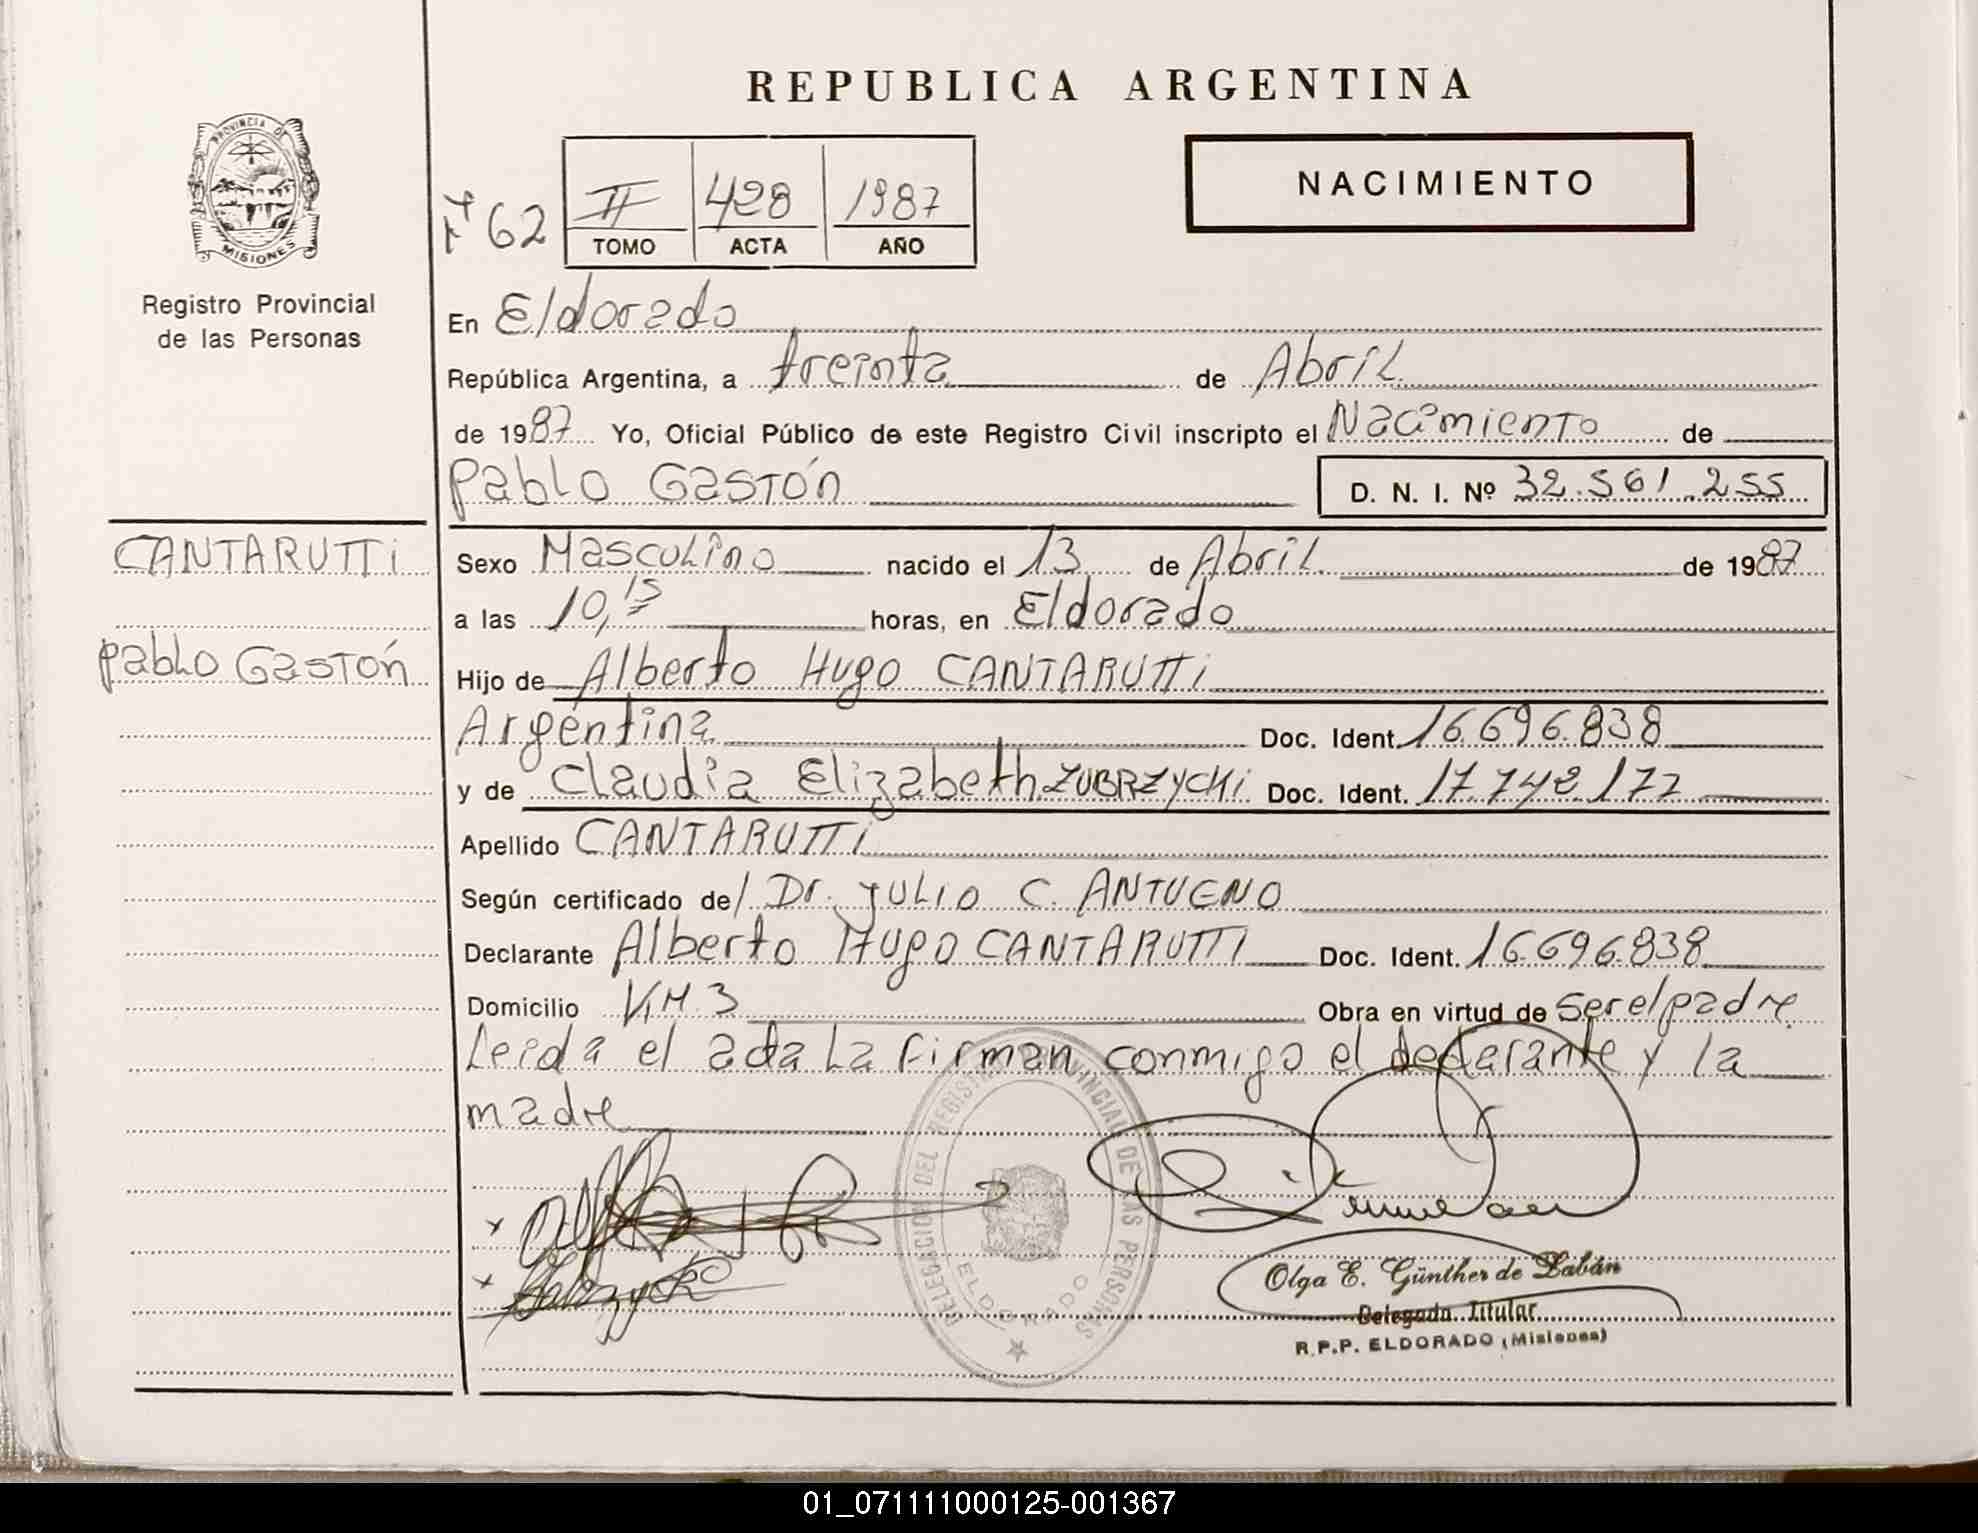 REPUBLICA ARGENTINA
PROVINCIA DE
MISIONES
Registro Provincial
de las Personas
Fº 62
II 428 1987
TOMO ACTA AÑO
NACIMIENTO
En Eldorado
República Argentina, a treinta de Abril
de 1987 Yo, Oficial Público de este Registro Civil inscripto el Nacimiento de
Pablo Gastón D. N. I. Nº 32.561.255
CANTARUTTi
Pablo Gastón
Sexo Masculino nacido el 13 de Abril de 1987
a las 10,15 horas, en Eldorado
Hijo de Alberto Hugo CANTARUTTi
Argentina Doc. Ident. 16.696.838
y de Claudia Elizabeth ZUBRZYCKi Doc. Ident. 17.742.177
Apellido CANTARUTTi
Según certificado de/ Dr. JULIO C. ANTUENO
Declarante Alberto Hugo CANTARUTTI Doc. Ident. 16.696.838
Domicilio KM. 3 Obra en virtud de ser el padre.
Leida el acta La firman conmigo el declarante y la
madre
DELEGACION DEL REGISTRO PROVINCIAL DE LAS PERSONAS
ELDORADO
Olga E. Günther de Labán
Delegada Titular
R.P.P. ELDORADO (Misiones)
01_071111000125-001367